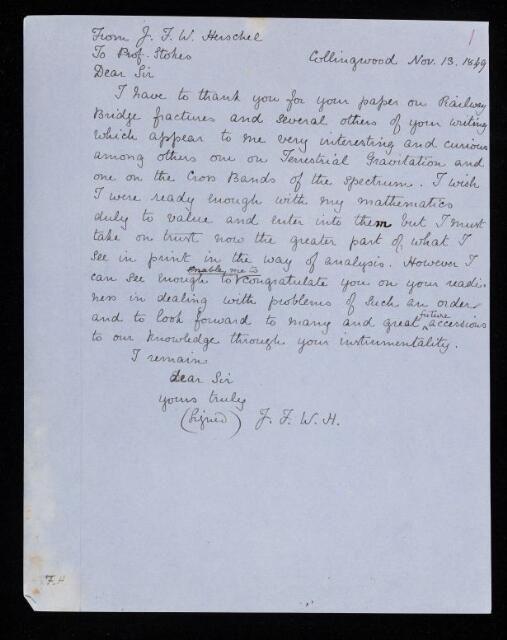 From J. F. W. Herschel
To Prof. Stokes
Collingwood Nov. 13. 1849
Dear Sir
I have to thank you for your paper on Railway
Bridge fractures and several others of your writing
which appear to me very interesting and curious
among others one on Terrestrial Gravitation and
one on the Cross Bands of the Spectrum. I wish
I were ready enough with my mathematics
duly to value and enter into them but I must
take on trust now the greater part of what I
see in print in the way of analysis. However I
can see enough to enable me to congratulate you on your readi-
ness in dealing with problems of such an order
and to look forward to many and great future accessions
to our knowledge through your instrumentality.
I remain
dear Sir
yours truly
(Signed) J. F. W. H.